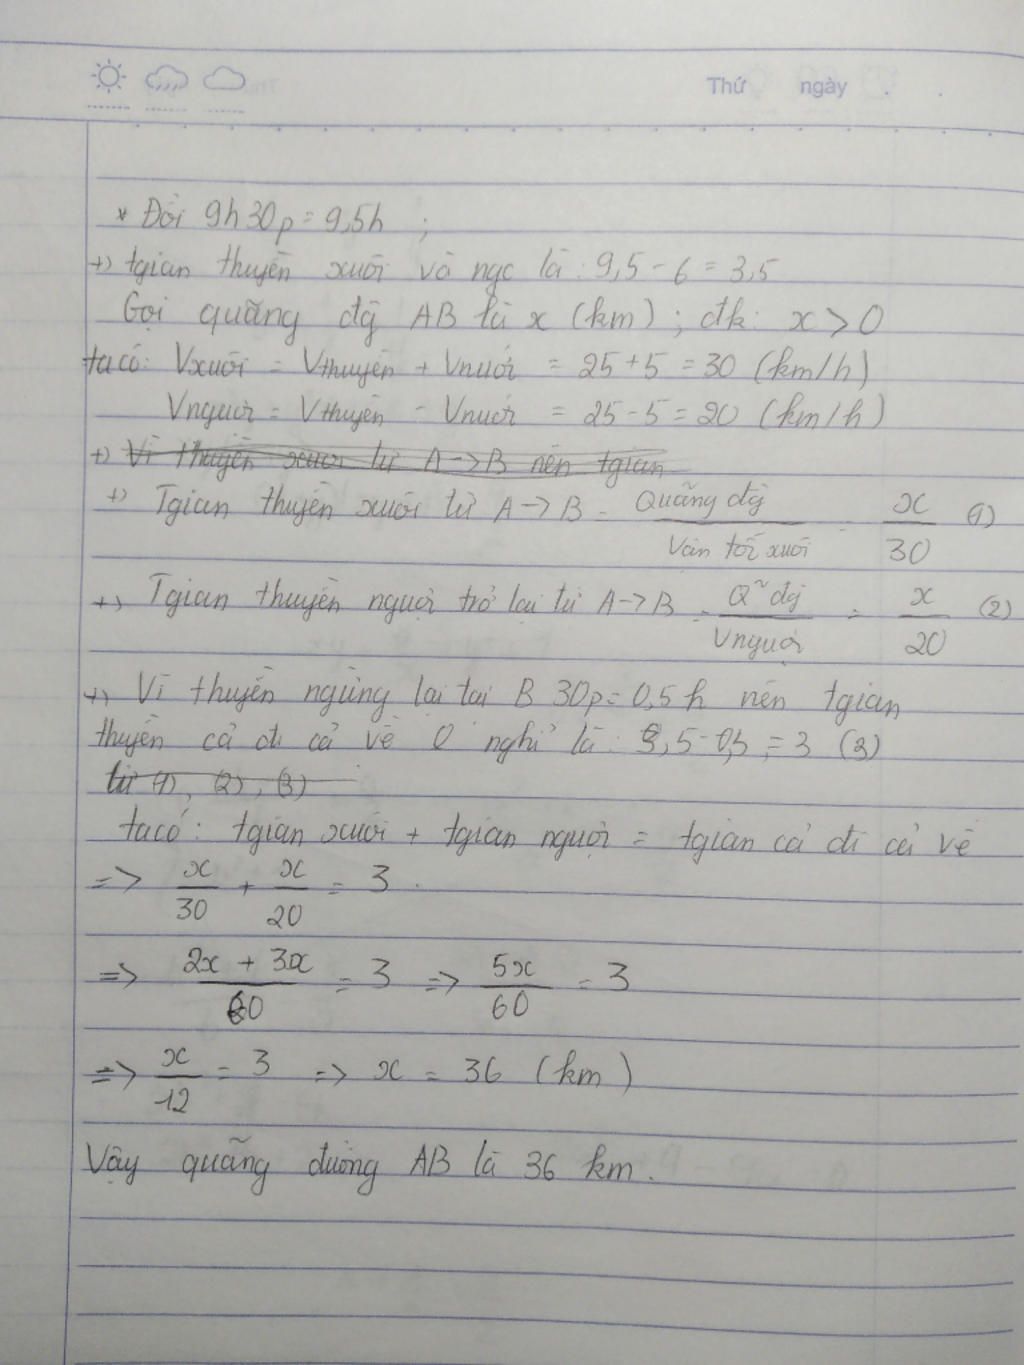 Thứ ngày
* Đổi 9h30p = 9,5h ;
+) tgian thuyền xuôi và ngc là : 9,5 - 6 = 3,5
Gọi quãng đg AB là x (km) ; đk: x > 0
ta có: Vxuôi = Vthuyền + Vnước = 25 + 5 = 30 (km/h)
Vngược = Vthuyền - Vnước = 25 - 5 = 20 (km/h)
+) Vì thuyền xuôi từ A -> B nên tgian
+) Tgian thuyền xuôi từ A -> B = Quãng đg / Vận tốc xuôi = x/30 (1)
+) Tgian thuyền ngược trở lại từ A -> B = Q~ đg / Vngược = x/20 (2)
+) Vì thuyền ngừng lại tại B 30p = 0,5h nên tgian
thuyền cả đi cả về 0 nghỉ là : 3,5 - 0,5 = 3 (3)
từ (1), (2), (3)
ta có : tgian xuôi + tgian ngược = tgian cả đi cả về
=> x/30 + x/20 = 3
=> (2x + 3x)/60 = 3 => 5x/60 = 3
=> x/12 = 3 => x = 36 (km)
Vậy quãng đường AB là 36 km.